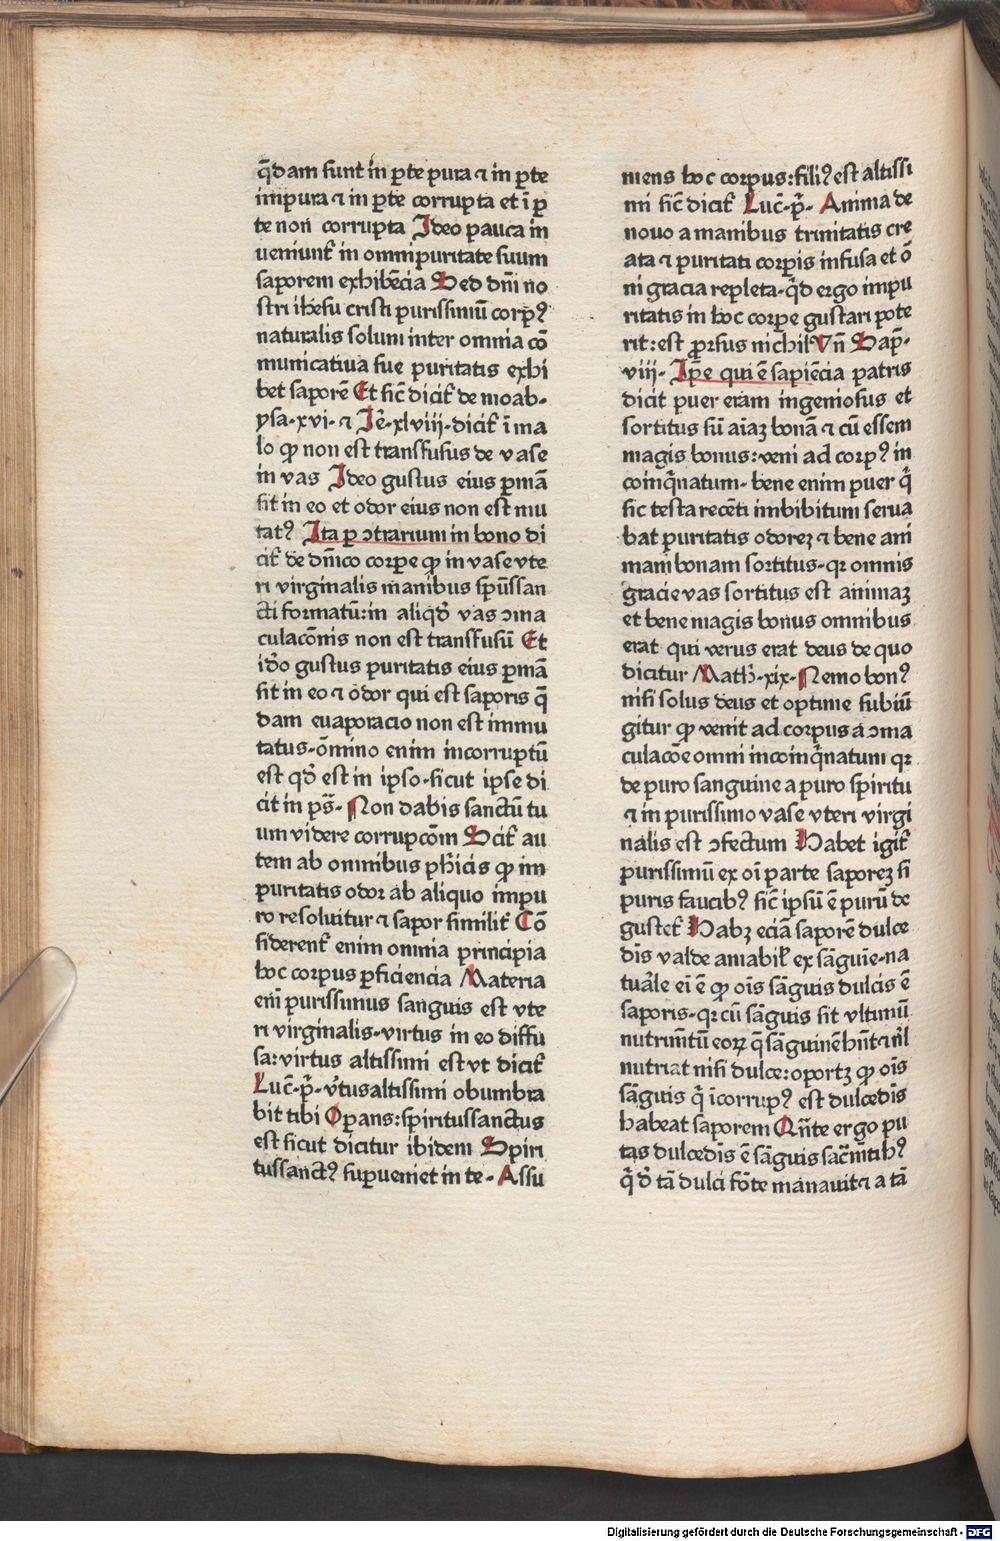 q̄dam sunt in ꝑte pura ⁊ in ꝑte
impura ⁊ in ꝑte corrupta et ī ꝑ
te non corrupta Ideo pauca in
ueniunt᷑ in omnipuritate suum
saporem exhibēcia Sed dn̄i no
stri ihesu cristi purissimū corpꝰ
naturalis solum inter omnia cō
municatiua sue puritatis exhi
bet saporē Et sic̄ dicit᷑ de moab-
ysa-xvi- ⁊ Ie᷑-xlviij-dicit᷑ ī ma
lo ꝙ non est transfusus de vase
in vas Ideo gustus eius ꝑmā
sit in eo et odor eius non est mu
tatꝰ Ita ꝑ ↄtrarium in bono di
cit᷑ de dn̄ico corpe ꝙ in vase vte
ri virginalis manibus spūssan
cti formatū:in aliqd̄ vas ↄma
culacōnis non est transfusū Et
id̄o gustus puritatis eius ꝑmā
sit in eo ⁊ odor qui est saporis q̄
dam euaporacio non est immu
tatus-ōmino enim incorruptū
est qd̄ est in ipso-sicut ipse di
cit in ps̄- Non dabis sanctū tu
um videre corrupcōm Scit᷑ au
tem ab omnibus ph̄icis ꝙ im
puritatis odor ab aliquo impu
ro resoluitur ⁊ sapor similit᷑ Cō
siderent᷑ enim omnia principia
hoc corpus ꝑficiencia Materia
em̄ purissimus sanguis est vte
ri virginalis-virtus in eo diffu
sa:virtus altissimi est vt dicit᷑
Luc̄-p̄- v̄tus altissimi obumbra
bit tibi Oꝑans:spiritussanctus
est sicut dicitur ibidem Spiri
tussanctꝰ suꝑueniet in te- Assu
mens hoc corpus:filiꝰ est altissi
mi sic̄ dicit᷑ Luc̄-p̄- Anima de
nouo a manibus trinitatis cre
ata ⁊ puritati corꝑis infusa et ō
ni gracia repleta-qd̄ ergo impu
ritatis in hoc corpe gustari pote
rit:est ꝓrsus nichil Vn̄ Sap̄-
viij- Ip̄e qui ē sapiēcia patris
dicit puer eram ingeniosus et
sortitus sū aīaꝫ bonā ⁊ cū essem
magis bonus:veni ad corpꝰ in
coinq̄natum- bene enim puer q̄
sic testa recēti imbibitum serua
bat puritatis odoreꝫ ⁊ bene ani
mam bonam sortitus-qꝛ omnis
gracie vas sortitus est animaꝫ
et bene magis bonus omnibus
erat qui verus erat deus de quo
dicitur Math̄-xix-Nemo bonꝰ
nisi solus deus et optime subiū
gitur ꝙ venit ad corpus a ↄma
culacōe omni incoinq̄natum qꝛ
de puro sanguine a puro spiritu
⁊ in purissimo vase vteri virgi
nalis est ↄfectum Habet igit᷑
purissimū ex oī parte saporeꝫ si
puris faucibꝰ sic̄ ipsū ē purū de
gustet᷑ Habꝫ eciā saporē dulce
dīs valde amabil̄ ex sāguīe-na
tur̄ale eī ē ꝙ oīs sāguis dulcis ē
saporis-qꝛ cū sāguis sit vltimū
nutrim̄tū eoꝝ q̄ sāguinē hn̄t ⁊ nīl
nutriat nisi dulce:oportꝫ ꝙ oīs
sāguis q̄ īcorrupꝰ est dulcedīs
habeat saporem Qn̄te ergo pu
tas dulcedīs ē sāguis sacr̄m̄tibꝰ
q̄ d̄ tā dulci fōte manauit ⁊ a tā
Digitalisierung gefördert durch die Deutsche Forschungsgemeinschaft - DFG